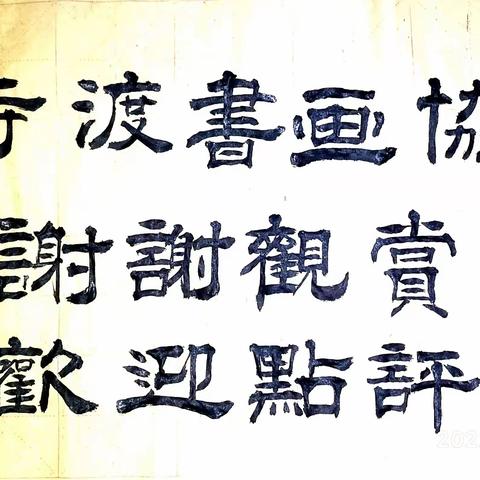 寺渡書画協
謝謝觀賞
歡迎點評
202